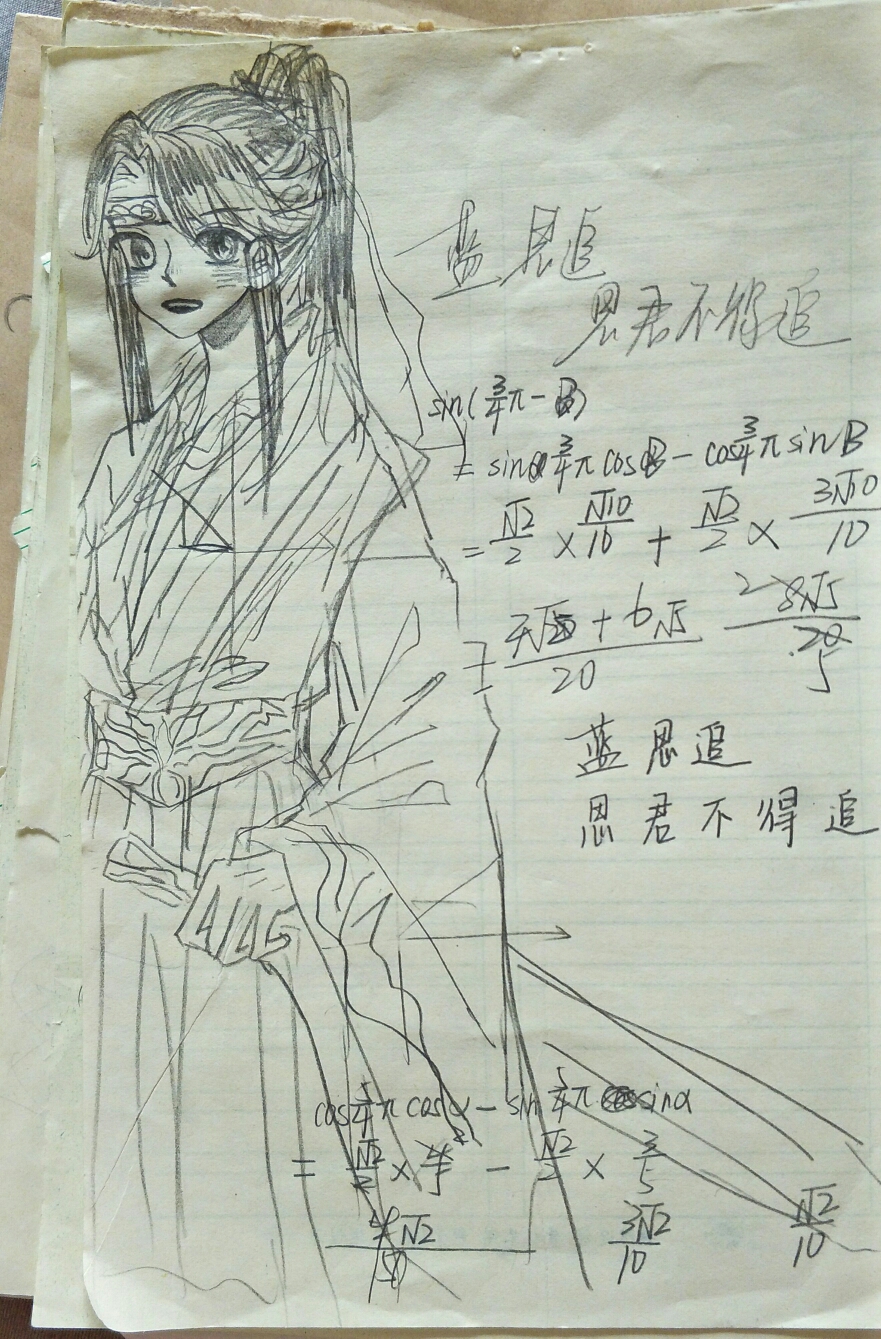 蓝思追
思君不得追
sin(3/4π - B)
= sin 3/4π cosB - cos 3/4π sinB
= √2/2 × √10/10 + √2/2 × 3√10/10
= 2√5 + 6√5 / 20 8√5 / 20 2 5
蓝思追
思君不得追
cos 5/4π cosα - sin 5/4π sinα
= √2/2 × 4/5 - √2/2 × 3/5
4√2/10 3√2/10 √2/10